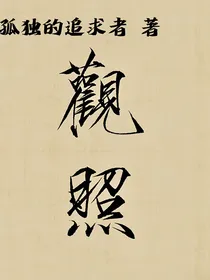 孤独的追求者 著
觀
照